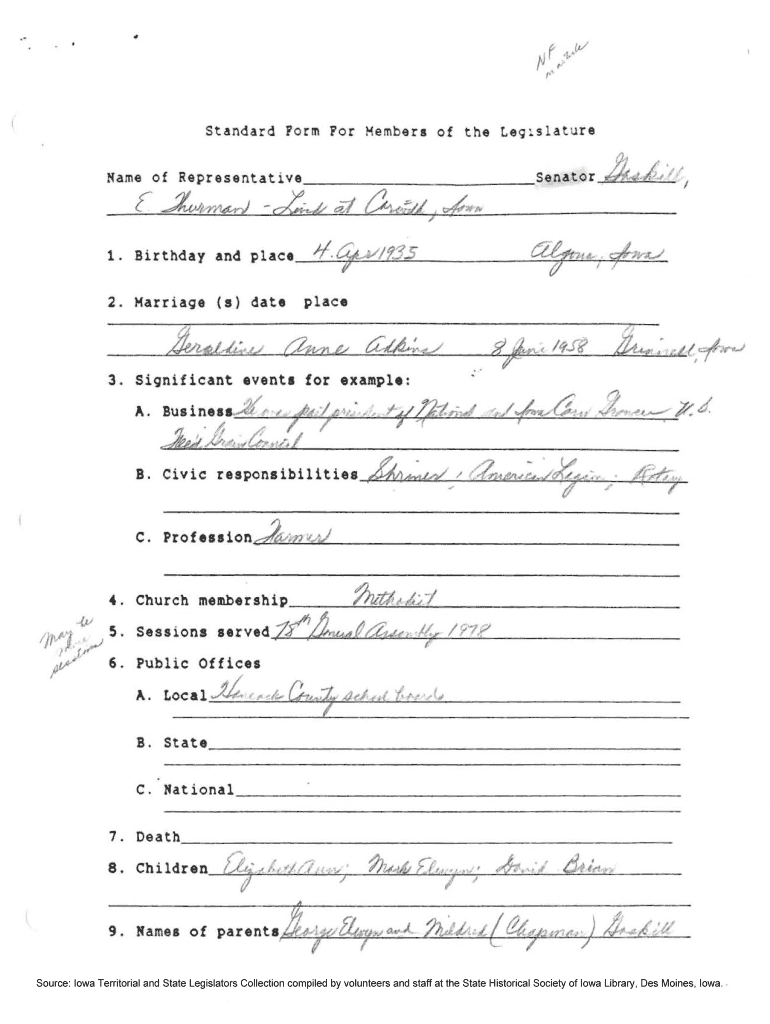 NF
Standard Form For Members of the Legislature
Name of Representative Senator Gaskill,
E Thurman - Lived at Corwith, Iowa
1. Birthday and place 4. Apr 1935 Algona, Iowa
2. Marriage (s) date place
Geraldine Anne Adkins 8 June 1958 Grinnell, Iowa
3. Significant events for example:
A. Business He was past president of National and Iowa Corn Growers U.S.
Feed Grain Council
B. Civic responsibilities Shriner; American Legion; Rotary
C. Profession Farmer
4. Church membership Methodist
May be
sessions
5. Sessions served 78th General Assembly 1978
6. Public Offices
A. Local Hancock County school boards
B. State
C. National
7. Death
8. Children Elizabeth Ann; Mark Elwyn; David Brian
9. Names of parents George Elwyn and Mildred (Chapman) Gaskill
Source: Iowa Territorial and State Legislators Collection compiled by volunteers and staff at the State Historical Society of Iowa Library, Des Moines, Iowa.